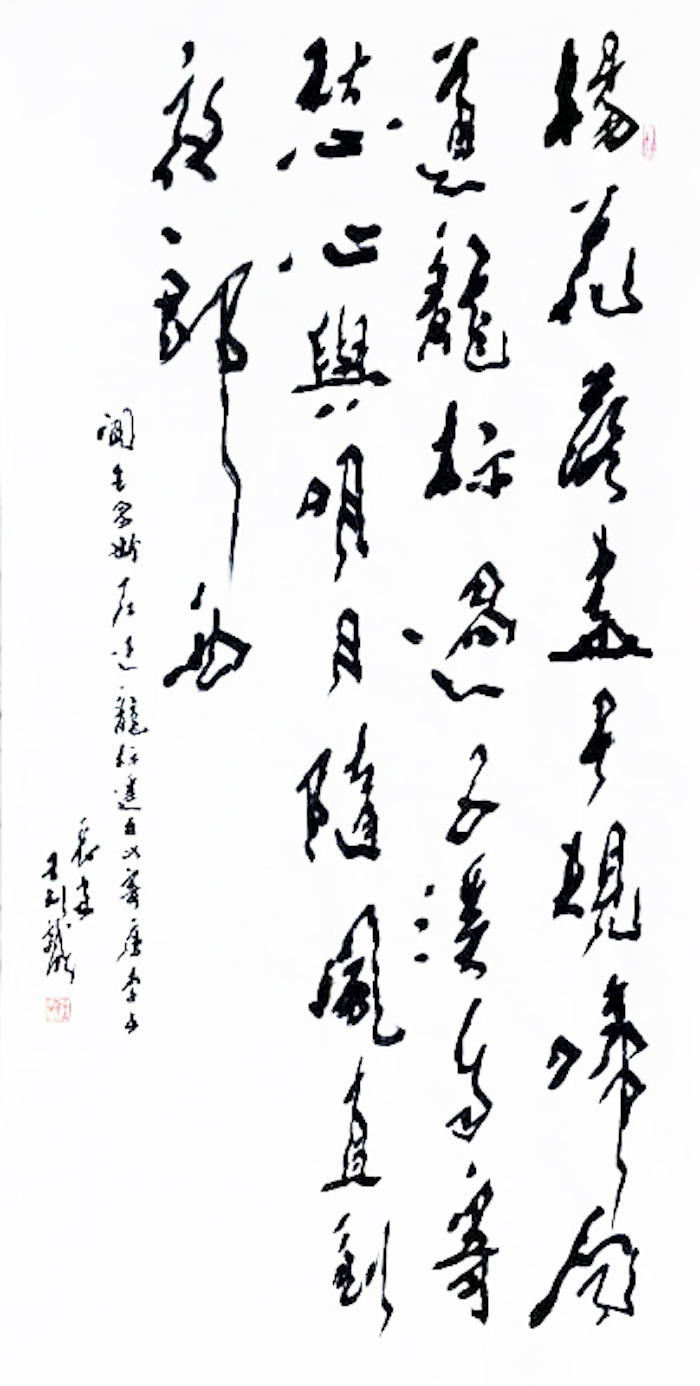 楊花落盡子規啼聞
道龍标過五溪我寄
愁心與明月隨風直到
夜郎西
聞王昌齡左迁龍标遥有此寄唐李白